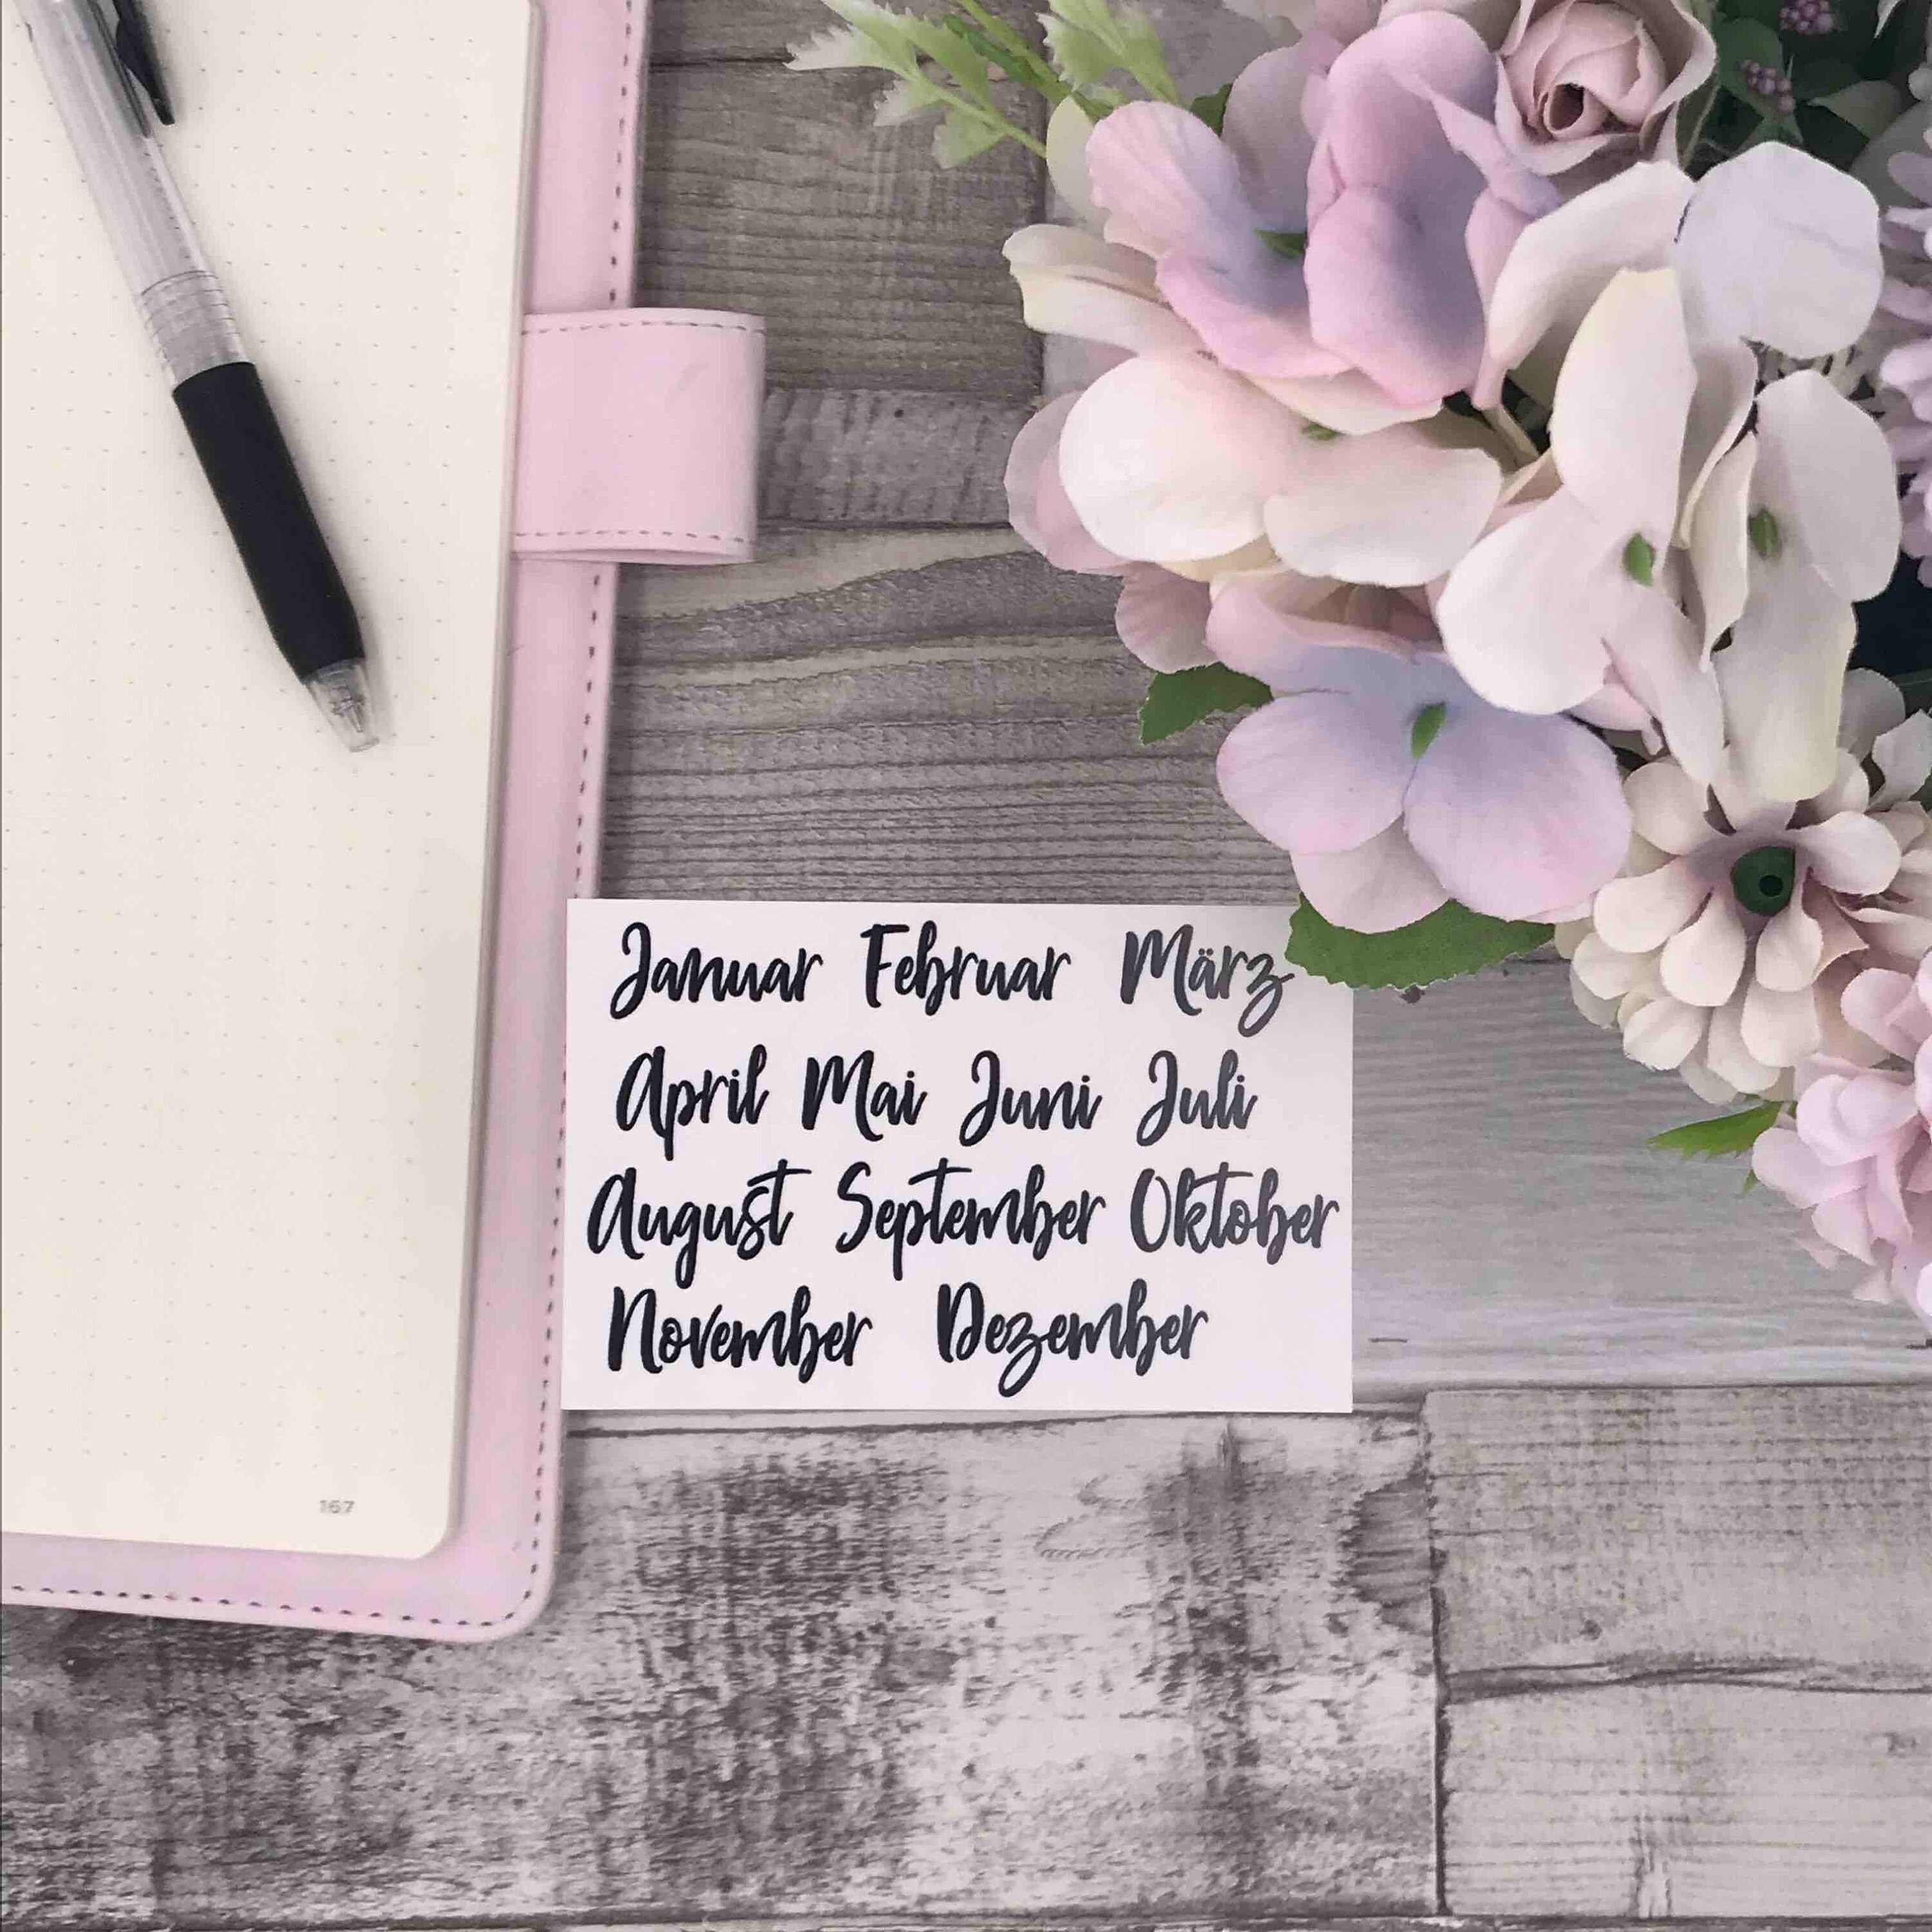 Januar Februar März
April Mai Juni Juli
August September Oktober
November Dezember
167